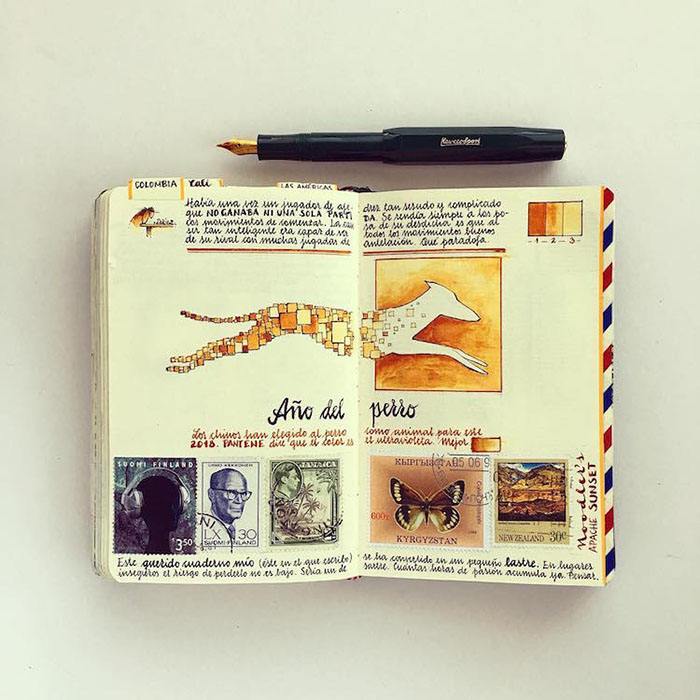 Kaweco Sport
COLOMBIA Cali LAS AMÉRICAS
Había una vez un jugador de aje- drez tan sesudo y complicado
que NO GANABA NI UNA SOLA PARTI DA. Se rendía siempre a los po-
cos movimientos de comenzar. La cau sa de su desdicha es que al
ser tan inteligente era capaz de ver todos los movimientos buenos
de su rival con muchas jugadas de antelación. Qué paradoja.
- 1 - 2 - 3 -
Año del perro
Los chinos han elegido al perro como animal para este
2018. PANTENE dice que el color es el ultravioleta. Mejor
SUOMI FINLAND
3,50
URHO KEKKONEN
1,30
SUOMI-FINLAND
JAMAICA
КЫРГЫЗСТАН
05 06 9
600т
KYRGYZSTAN
NEW ZEALAND 30c
Noodler's
APACHE SUNSET
Este querido cuaderno mío (éste en el que escribo) se ha convertido en un pequeño lastre. En lugares
inseguros el riesgo de perderlo no es bajo. Sería un de sastre. Cuántas horas de pasión acumula ya. Pensar.